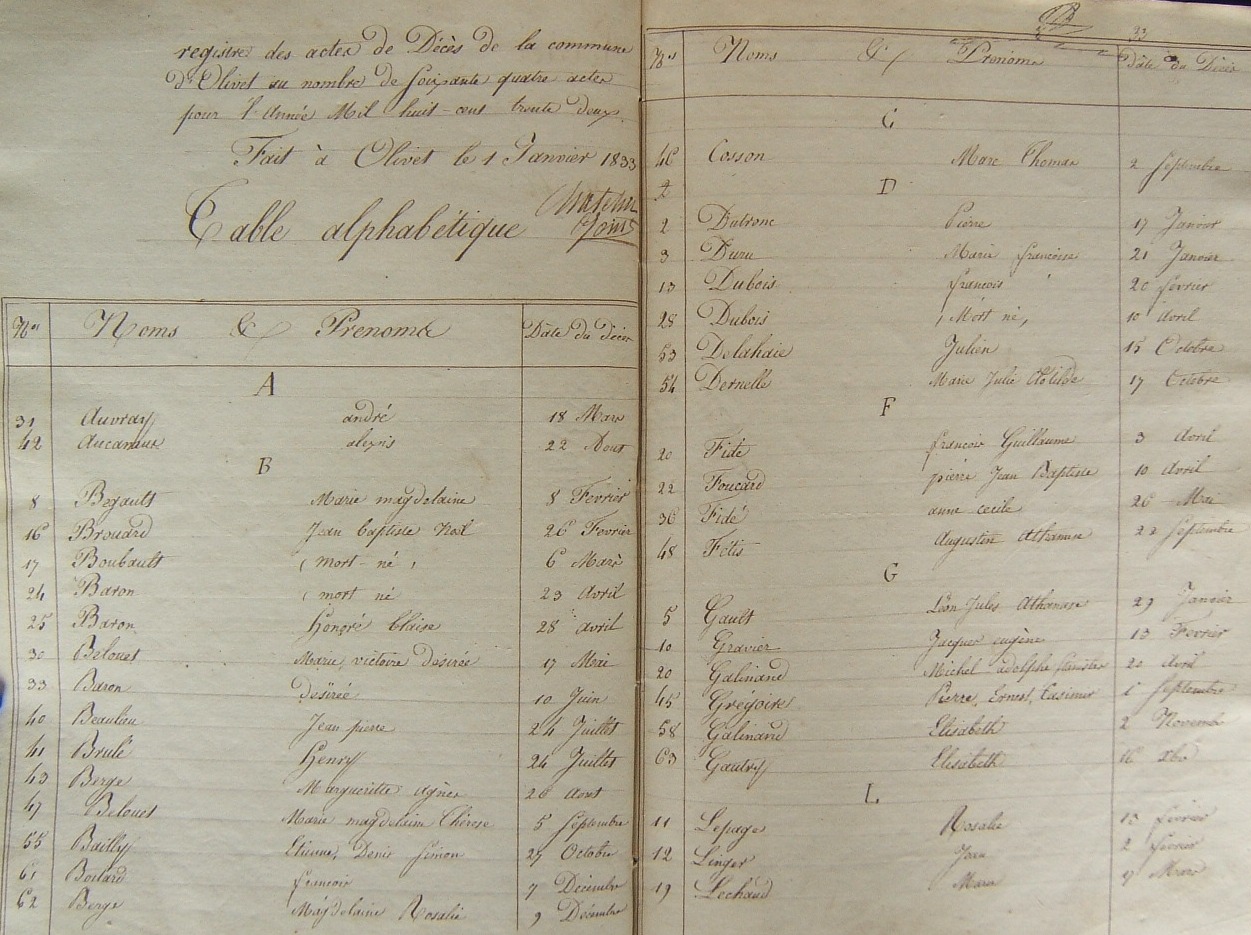 registre des actes de Décès de la commune
d'Olivet au nombre de soixante quatre actes
pour l'Année Mil huit-cent trente deux.
Fait à Olivet le 1 Janvier 1833
Table alphabétique
Nos Noms & Prenoms Date du décès
A
31 Auvray andré 18 Mars
42 alexis 22 Aout
B
8 Begault Marie magdelaine 8 Fevrier
16 Brouard Jean baptiste Noël 26 Fevrier
17 Boubault ( mort-né ) 6 Mars
24 Baron ( mort né 23 Avril
25 Baron Honoré blaise 28 avril
30 Belouet Marie victoire désirée 17 Mai
33 Baron désirée 10 Juin
40 Beaulieu Jean pierre 24 Juillet
41 Brulé Henry 24 Juillet
43 Berge Margueritte Agnès 26 Aout
47 Belouet Marie magdelaine Thérese 5 Septembre
55 Bailly Etienne, Denis Simon 27 Octobre
61 Boilard francois 7 Décembre
62 Berge Magdelaine Rosalie 9 Décembre
33
Nos Noms & Prénoms Date du Décès
C
46 Cosson Marc Thomas 2 Septembre
D
2 Dutrone Pierre 17 Janvier
3 Duru Marie francoise 21 Janvier
13 Dubois francois 20 fevrier
28 Dubois ( Mort né, 10 avril
53 Delahaie Julien 15 Octobre
54 Dernelle Marie Julie Clotilde 17 Octobre
F
20 Fidé francois Guillaume 3 Avril
22 Foucard pierre Jean Baptiste 10 Avril
36 Fidé anne cecile 26 Mai
48 Fétis Augustin Athanase 22 Septembre
G
5 Gault Léon Jules Athanase 29 Janvier
10 Gravier Jacques eugène 13 Fevrier
20 Galinand Michel adolphe Stanislas 20 Avril
45 Grégoire Pierre, Ernest, Casimir 1 Septembre
58 Galinand Elisabeth 2 Novemb
63 Gaudry Elisabeth 16 xbre
L
11 Lepage Rosalie 13 fevrier
12 Linger Jean 2 fevrier
19 Lechaud Marie 9 Mars